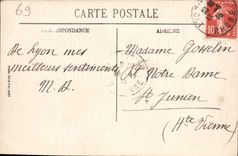 69
CARTE POSTALE
CORRESPONDANCE
ADRESSE
De Lyon mes
meilleurs sentiments
M. B.
Madame Gosselin
St Notre Dame
St Junien
(Hte Vienne)
10